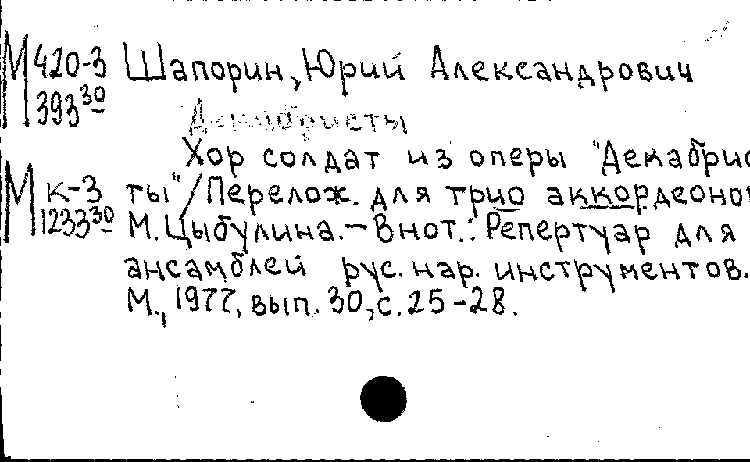 М 420-3 Шапорин, Юрий Александрович
393 30
Декабристы
Хор солдат из оперы "Декабрис
М к-3 ты"/Перелож. для трио аккордеонов
1233 30 М. Цыбулина. - В нот.: Репертуар для
ансамблей рус. нар. инструментов.
М., 1977, вып. 30, с. 25-28.